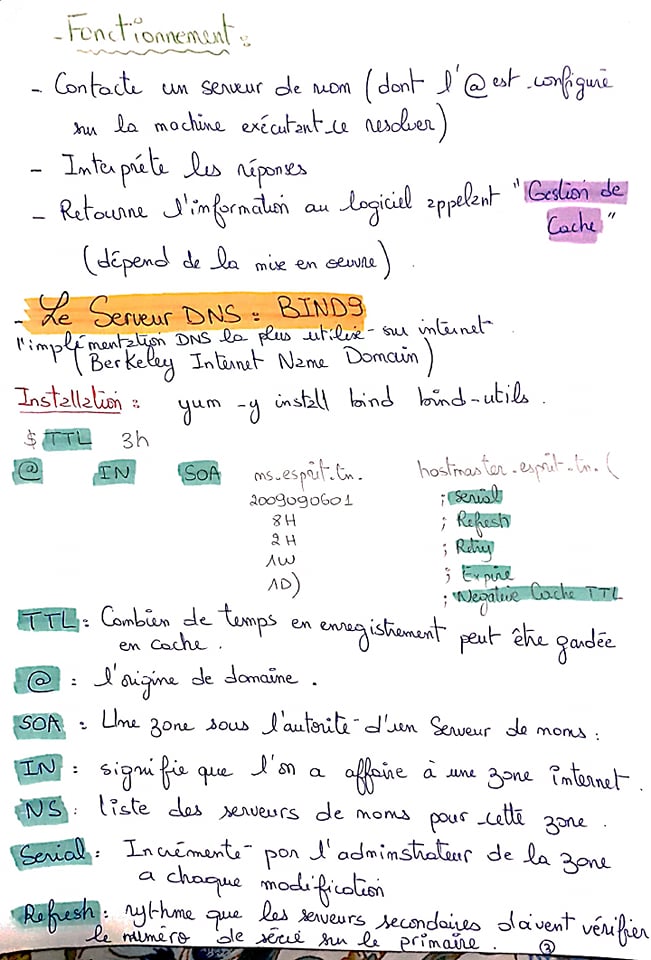 - Fonctionnement :
- Contacte un serveur de nom (dont l'@ est configuré
sur la machine exécutant ce resolver)
- Interpréte les réponses
- Retourne l'information au logiciel appelant "Gestion de
Cache"
(dépend de la mise en oeuvre)
- Le Serveur DNS : BIND9
l'implémentation DNS la plus utilisé sur internet.
(Berkeley Internet Name Domain)
Installation : yum -y install bind bind-utils.
$ TTL 3h
@ IN SOA ms.esprit.tn. hostmaster.esprit.tn. (
2009090601 ; serial
8H ; Refresh
2H ; Retry
1W ; Expire
1D) ; Negative Cache TTL
TTL : Combien de temps en enregistrement peut être gardée
en cache.
@ : l'origine de domaine.
SOA : Une zone sous l'autorité d'un Serveur de moms :
IN : signifie que l'on a affaire à une zone internet.
NS : liste des serveurs de moms pour cette zone.
Serial : Incrémenté par l'adminstrateur de la zone
a chaque modification
Refresh : rythme que les serveurs secondaires doivent vérifier
le numéro de série sur le primaire.